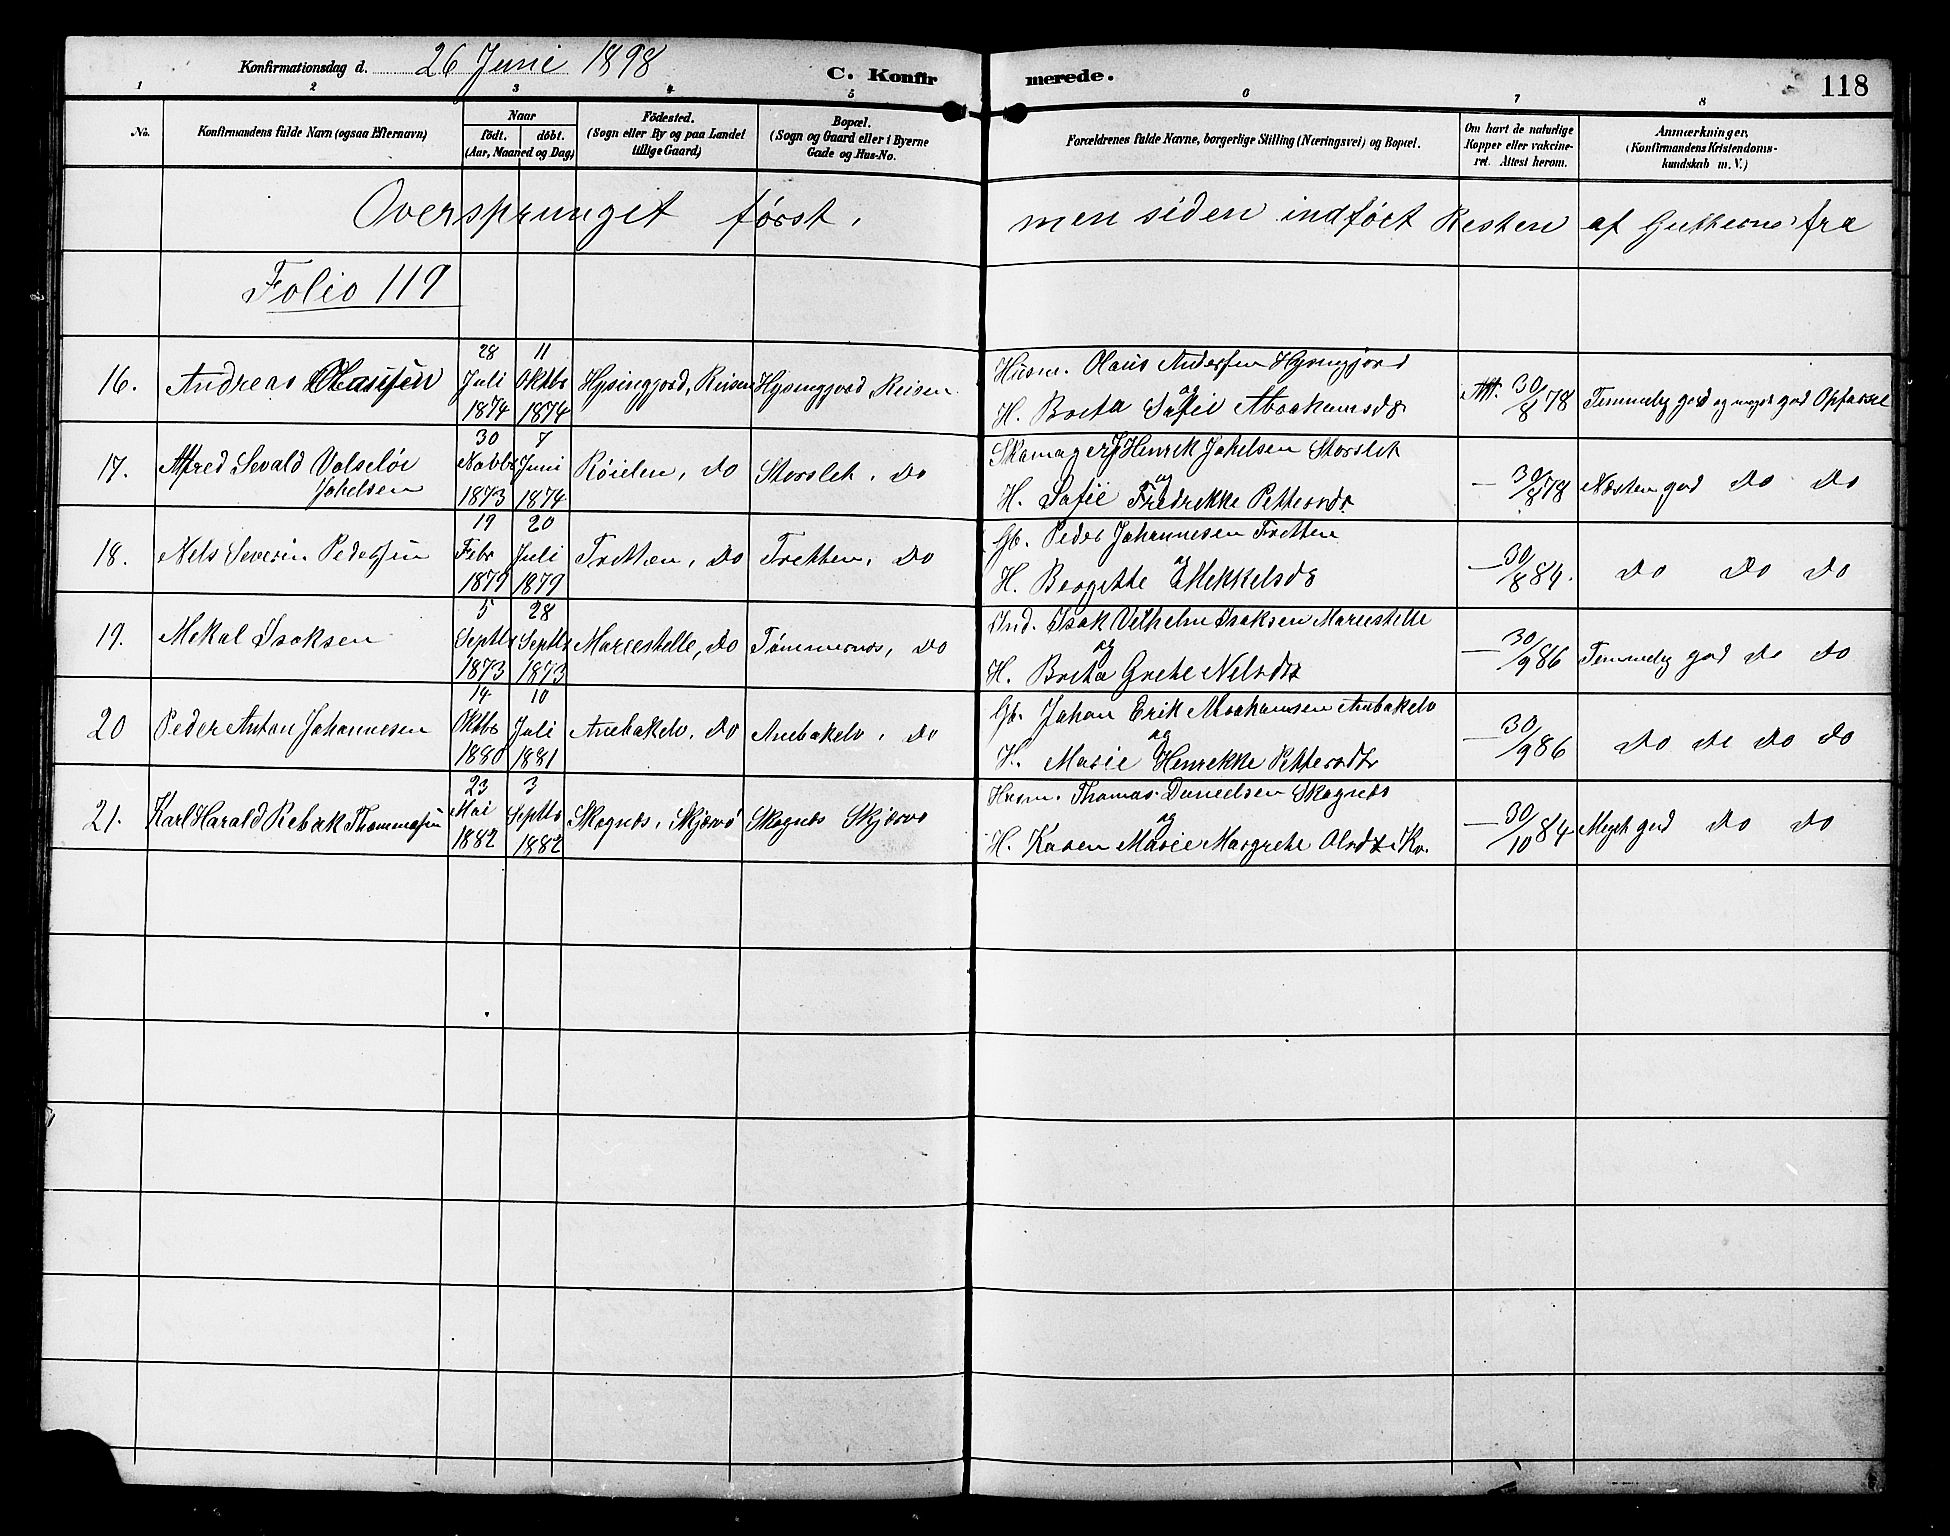 Konfirmationsdag d. 26 Juni 1898
C. Konfirmerede.
118
1 2 3 4 5 6 7 8
No.
Konfirmandens fulde Navn (ogsaa Efternavn)
Naar
födt. döbt.
(Aar, Maaned og Dag)
Födested.
(Sogn eller By og paa Landet
tillige Gaard)
Bopæl.
(Sogn og Gaard eller i Byerne
Gade og Hus-No.
Forældrenes fulde Navne, borgerlige Stilling (Næringsvei) og Bopæl.
Om havt de naturlige
Kopper eller vakcine-
ret. Attest herom.
Anmærkninger,
(Konfirmandens Kristendoms-
kundskab m. V.)
Oversprunget først, men siden indført Resten af Gutterne fra
Folio 119
16. Andreas Olaussen
28 Juli 1874
11 Oktbr 1874
Hysingjord, Reisen
Hysingjord, Reisen
Husm. Olaus Andersen Hysingjord
og
H. Brita Sofie Abrahamsdr
Att. 30/8 78
Temmelig god og meget god Opførsel
17. Alfred Sevald Valseløi
Jakelsen
30 Novbr 1873
7 Juni 1874
Røielen, do
Storslet, do
Skomager J Henrik Jakelsen Storslet
og
H. Sofie Fredrikke Pettersdr
— 30/8 78
Næsten god do do
18. Nels Severin Pedersen
19 Febr 1879
20 Juli 1879
Tretten, do
Tretten, do
Gb. Peder Johannesen Tretten
og
H. Bergette Mekkelsdr
— 30/8 84.
do do do
19. Mekal Isaksen
5 Septbr 1873
28 Septbr 1873
Mariestelle, do
Tømmernes, do
Ind. Isak Vilhelm Isaksen Mariestelle
og
H. Brita Grete Nilsdtr
— 30/9 86
Temmelig god do do
20 Peder Anton Johannesen
14 Oktbr 1880
10 Juli 1881
Anebakelv, do
Anebakelv, do
Gb. Johan Erik Abrahamsen Anbakelv
og
H. Marie Henrekke Pettersdtr
— 30/9 86
do do do do
21. Karl Harald Rebæk Thommasen
23 Mai 1882
3 Septbr 1882
Skognes, Skjærvø
Skognes Skjærvø
Husm. Thomas Danielsen Skognes
og
H. Karen Marie Margrethe Olsdtr Kv.
— 30/10 84
Meget god do do